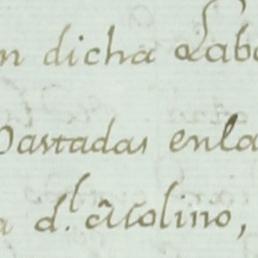 n dicha Labo
Pastadas enla
a d.l Molino,